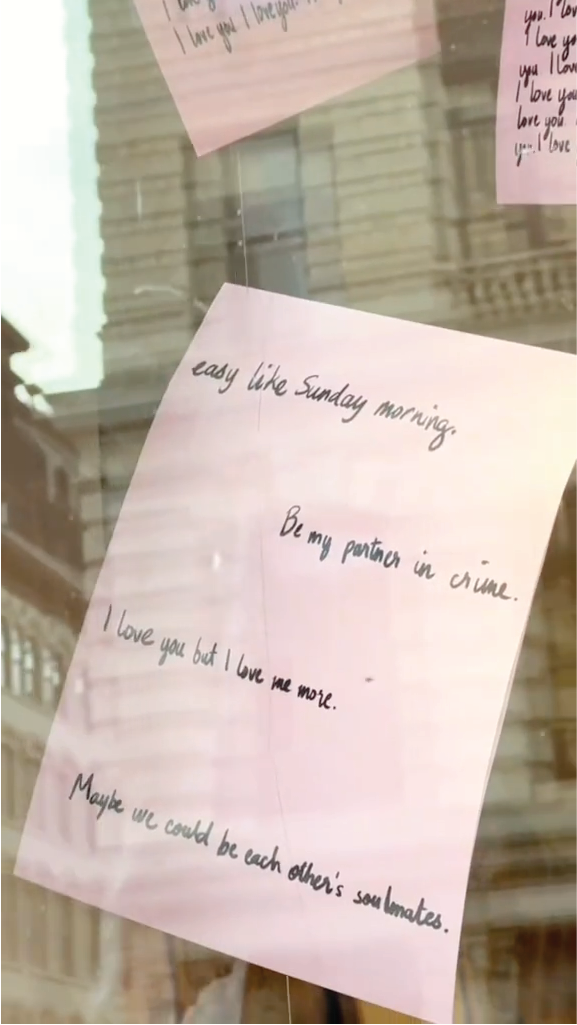 I love you I love you.
you. I love
I love you
you I love
I love you
love you.
you. I love
easy like Sunday morning.
Be my partner in crime.
I love you but I love me more.
Maybe we could be each other's soulmates.